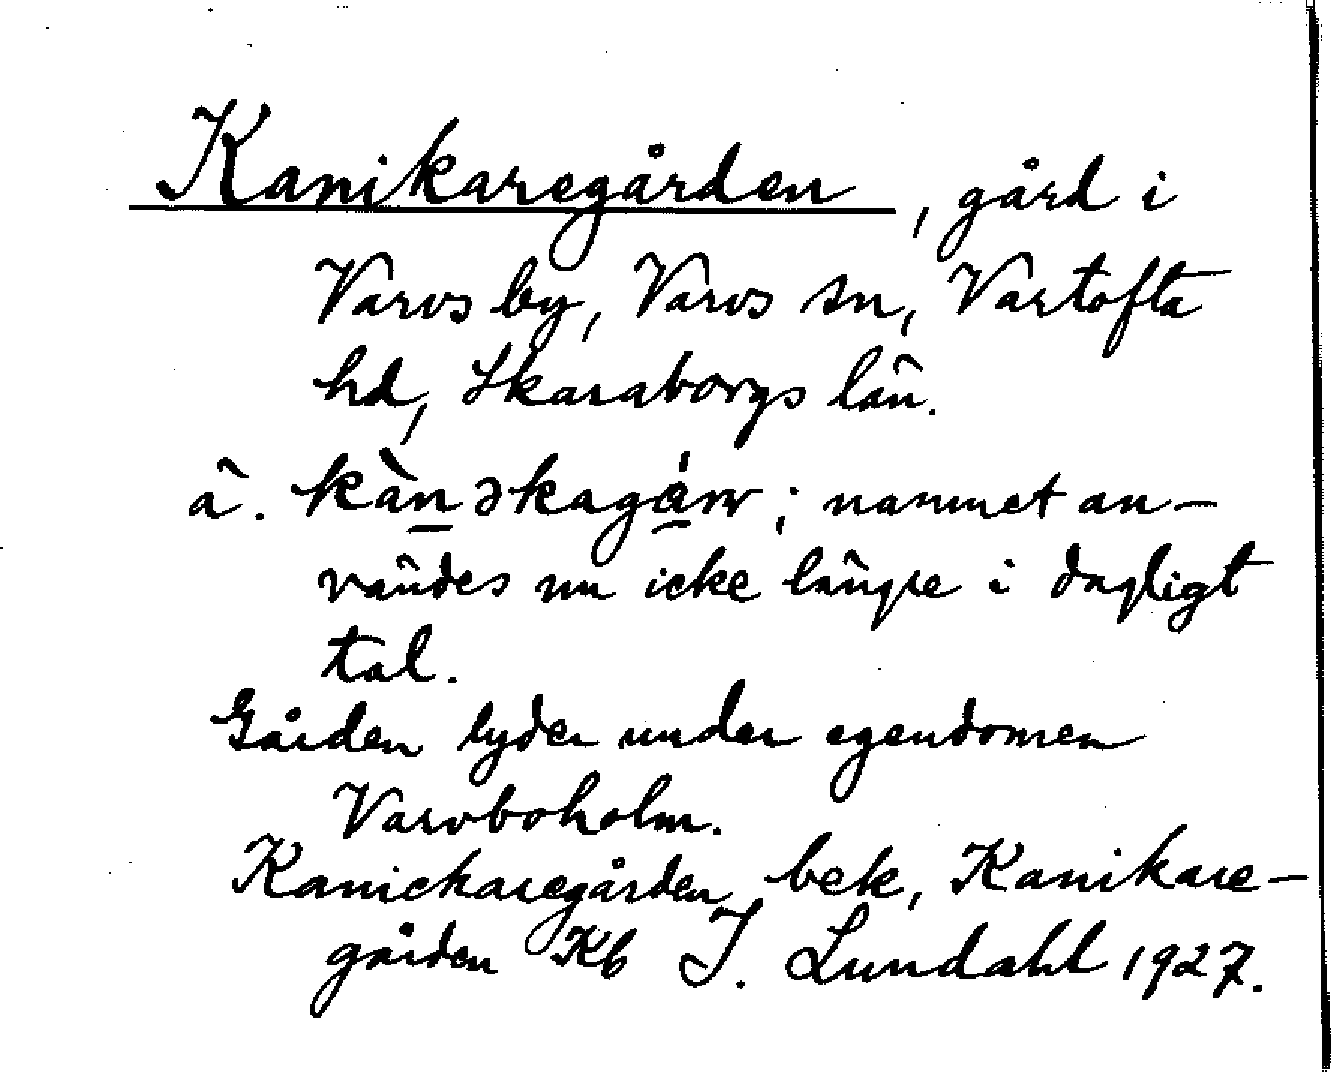 Kanikaregården, gård i
Varvs by, Varvs sn, Vartofta
hd, Skaraborgs län.
ä. kàn əkagạ̊ṇ; namnet an-
vändes nu icke längre i dagligt
tal.
Gården lyder under egendomen
Varvboholm.
Kanickaregården bek, Kanikare-
gården Kb J. Lundahl 1927.